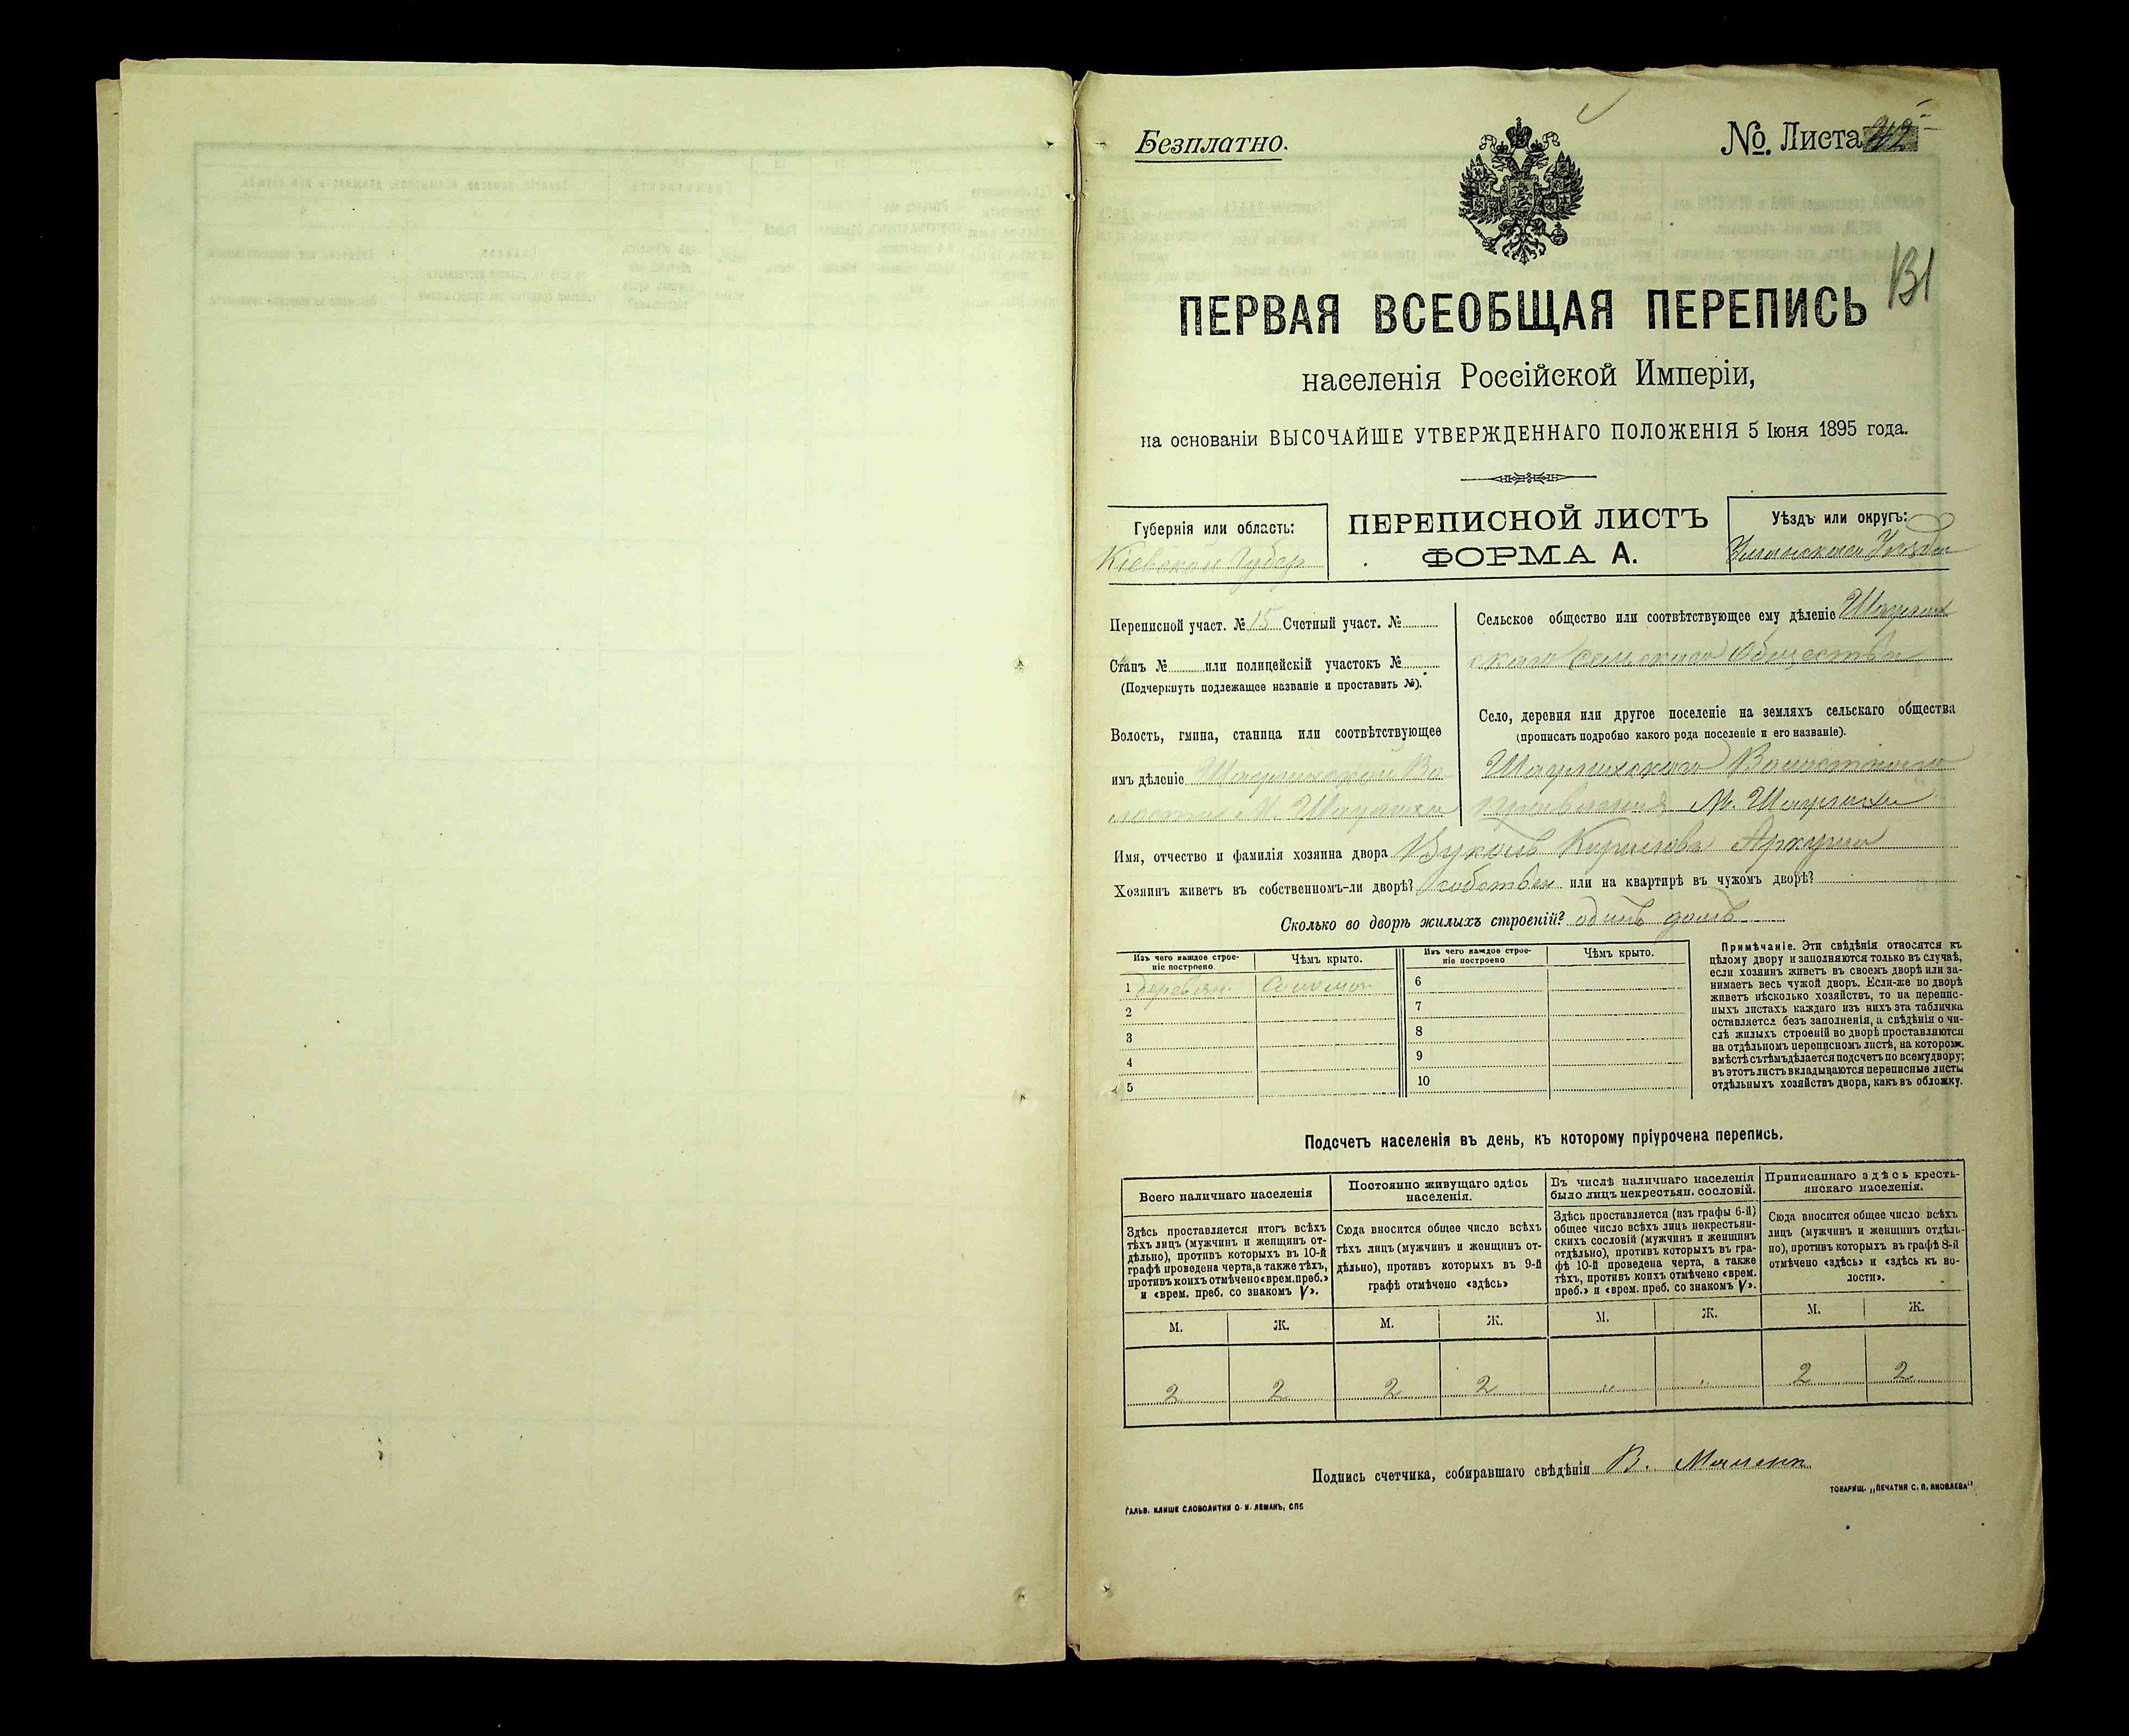 Безплатно.
№. Листа 42
131
ПЕРВАЯ ВСЕОБЩАЯ ПЕРЕПИСЬ
населенія Россійской Имперіи,
на основаніи ВЫСОЧАЙШЕ УТВЕРЖДЕННАГО ПОЛОЖЕНІЯ 5 Іюня 1895 года.
Губернія или область:
Кіевской Губер
ПЕРЕПИСНОЙ ЛИСТЪ
ФОРМА А.
Уѣздъ или округъ:
Уѣзда
Переписной участ. № 15 Счетный участ. №
Станъ № или полицейскій участокъ №
(Подчеркнуть подлежащее названіе и проставить №).
Волость, гмина, станица или соотвѣтствующее
имъ дѣленіе Шаулихской Во
лости М. Шаулиха
Сельское общество или соотвѣтствующее ему дѣленіе Шаулих
скаго Сельскаго Общества
Село, деревня или другое поселеніе на земляхъ сельскаго общества
(прописать подробно какого рода поселеніе и его названіе).
Шаулихскаго Волостного
правленія М. Шаулиха
Имя, отчество и фамилія хозяина двора Вуколъ Кириловъ
Хозяинъ живетъ въ собственномъ-ли дворѣ? собствен или на квартирѣ въ чужомъ дворѣ?
Сколько во дворѣ жилыхъ строеній? одинъ домъ
Изъ чего каждое строе-
ніе построено.
Чѣмъ крыто.
Изъ чего каждое строе-
ніе построено
Чѣмъ крыто.
1 деревян. Солома
6
2
7
3
8
4
9
5
10
Примѣчаніе. Эти свѣдѣнія относятся къ
цѣлому двору и заполняются только въ случаѣ,
если хозяинъ живетъ въ своемъ дворѣ или за-
нимаетъ весь чужой дворъ. Если-же во дворѣ
живетъ нѣсколько хозяйствъ, то на перепис-
ныхъ листахъ каждаго изъ нихъ эта табличка
оставляется безъ заполненія, а свѣдѣнія о чи-
слѣ жилыхъ строеній во дворѣ проставляются
на отдѣльномъ переписномъ листѣ, на которомъ
вмѣстѣ съ тѣмъ дѣлается подсчетъ по всему двору;
въ этотъ листъ вкладываются переписные листы
отдѣльныхъ хозяйствъ двора, какъ въ обложку.
Подсчетъ населенія въ день, къ которому пріурочена перепись.
Всего наличнаго населенія
Здѣсь проставляется итогъ всѣхъ
тѣхъ лицъ (мужчинъ и женщинъ от-
дѣльно), противъ которыхъ въ 10-й
графѣ проведена черта, а также тѣхъ,
противъ коихъ отмѣчено «врем. преб.»
и «врем. преб. со знакомъ V».
Постоянно живущаго здѣсь
населенія.
Сюда вносится общее число всѣхъ
тѣхъ лицъ (мужчинъ и женщинъ от-
дѣльно), противъ которыхъ въ 9-й
графѣ отмѣчено «здѣсь»
Въ числѣ наличнаго населенія
было лицъ некрестьян. сословій.
Здѣсь проставляется (изъ графы 6-й)
общее число всѣхъ лицъ некрестьян-
скихъ сословій (мужчинъ и женщинъ
отдѣльно), противъ которыхъ въ гра-
фѣ 10-й проведена черта, а также
тѣхъ, противъ коихъ отмѣчено «врем.
преб.» и «врем. преб. со знакомъ V».
Приписаннаго здѣсь кресть-
янскаго населенія.
Сюда вносится общее число всѣхъ
лицъ (мужчинъ и женщинъ отдѣль-
но), противъ которыхъ въ графѣ 8-й
отмѣчено «здѣсь» и «здѣсь къ во-
лости».
М. Ж. М. Ж. М. Ж. М. Ж.
2 2 2 2 „ „ 2 2
Подпись счетчика, собиравшаго свѣдѣнія В.
ГАЛЬВ. КЛИШЕ СЛОВОЛИТНИ О. И. ЛЕМАНЪ, СПБ
ТОВАРИЩ. „ПЕЧАТНЯ С. П. ЯКОВЛЕВА"